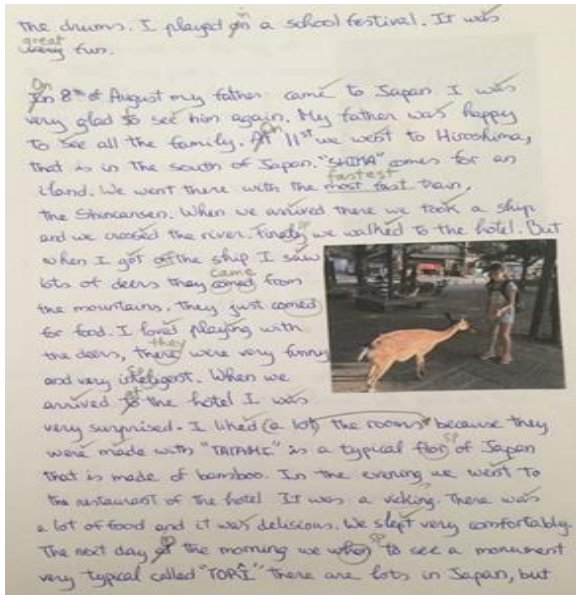 the drums. I played in a school festival. It was
great
very fun.
On
In 8th of August my father came to Japan. I was
very glad to see him again. My father was happy
to see all the family. At 11st we went to Hiroshima,
that is in the south of Japan. "SHIMA" comes for an
fastest
iland. We went there with the most fast train,
the Shincansen. When we arrived there we took a ship
and we crossed the river. Finaly sp we walked to the hotel. But
when I got off the ship I saw
came
lots of deers they comed from
the mountains, they just comed
for food. I loved playing with
they
the deers, there were very funny
and very inteligent. When we
at
arrived to the hotel I was
very surprised. I liked (a lot) the rooms because they
sp
were made with "TATAMI" is a typical flor of Japan
that is made of bamboo. In the evening we went to
the restaurant of the hotel It was a vicking. There was
a lot of food and it was delicious. We slept very comfortably.
sp
The next day at the morning we when to see a monument
very typical called "TORÎ" there are lots in Japan, but